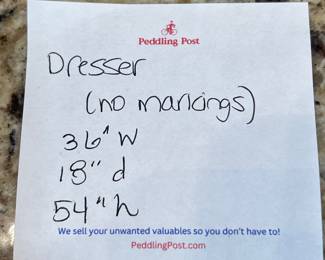 Peddling Post
Dresser
(no markings)
36" W
18" d
54" h
We sell your unwanted valuables so you don't have to!
PeddlingPost.com